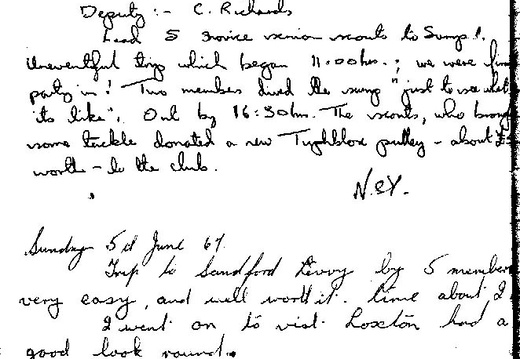 Deputy :- C. Richards
Lead 5 novice senior scouts to Sump 1.
Uneventful trip which began 11.00hrs. ; we were
party in! Two members dived the sump "just to see what
its like". Out by 16:30hrs. The scouts, who
some tackle donated a new Tyghblox pulley - about
worth - to the club.
Sunday 5th June 67.
Trip to Sandford Levvy by 5
very easy, and well worth it. time about 2
I went on to visit Loxton had a
good look round.